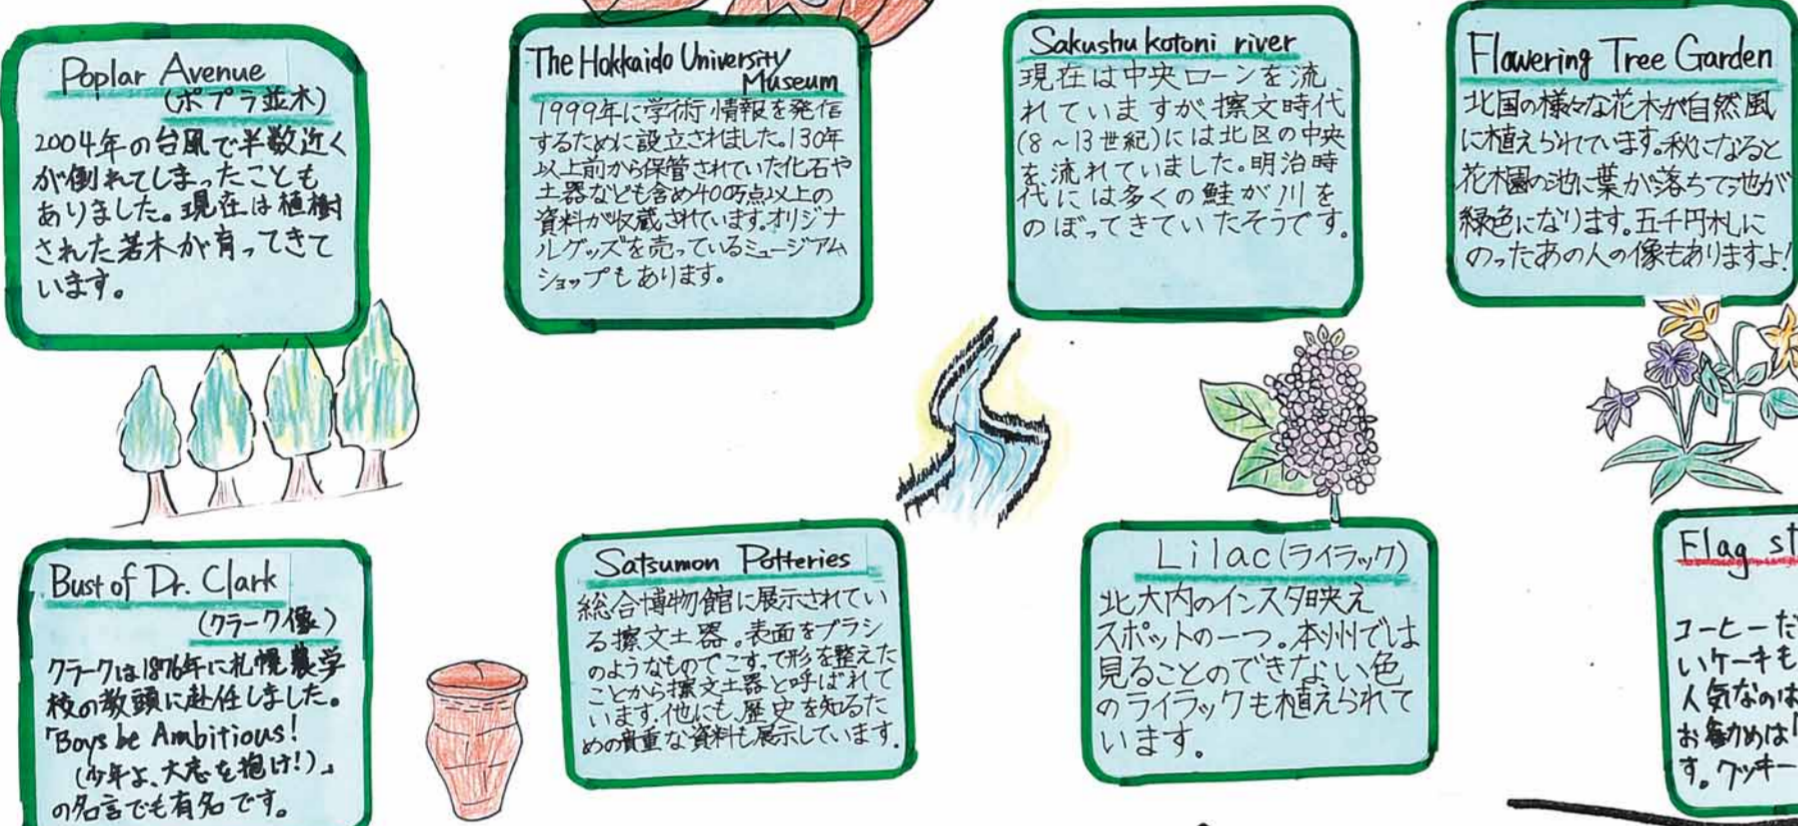 Poplar Avenue
(ポプラ並木)
2004年の台風で半数近く
が倒れてしまったことも
ありました。現在は植樹
された若木が育ってきて
います。
The Hokkaido University
Museum
1999年に学術情報を発信
するために設立されました。130年
以上前から保管されていた化石や
土器なども含め400万点以上の
資料が収蔵されています。オリジナ
ルグッズを売っているミュージアム
ショップもあります。
Sakushu kotoni river
現在は中央ローンを流
れていますが擦文時代
(8~13世紀)には北区の中央
を流れていました。明治時
代には多くの鮭が川を
のぼってきていたそうです。
Flowering Tree Garden
北国の様々な花木が自然風
に植えられています。秋になると
花木園の池に葉が落ちて池が
緑色になります。五千円札に
のったあの人の像もありますよ!
Bust of Dr. Clark
(クラーク像)
クラークは1876年に札幌農学
校の教頭に赴任しました。
「Boys be Ambitious!
(少年よ、大志を抱け!)」
の名言でも有名です。
Satsumon Potteries
総合博物館に展示されてい
る擦文土器。表面をブラシ
のようなものでこすって形を整えた
ことから擦文土器と呼ばれて
います。他にも歴史を知るた
めの貴重な資料も展示しています。
Lilac(ライラック)
北大内のインスタ映え
スポットの一つ。本州では
見ることのできない色
のライラックも植えられて
います。
Flag st
コーヒーだ
いケーキも
人気なのは
お勧めは「
す。クッキー